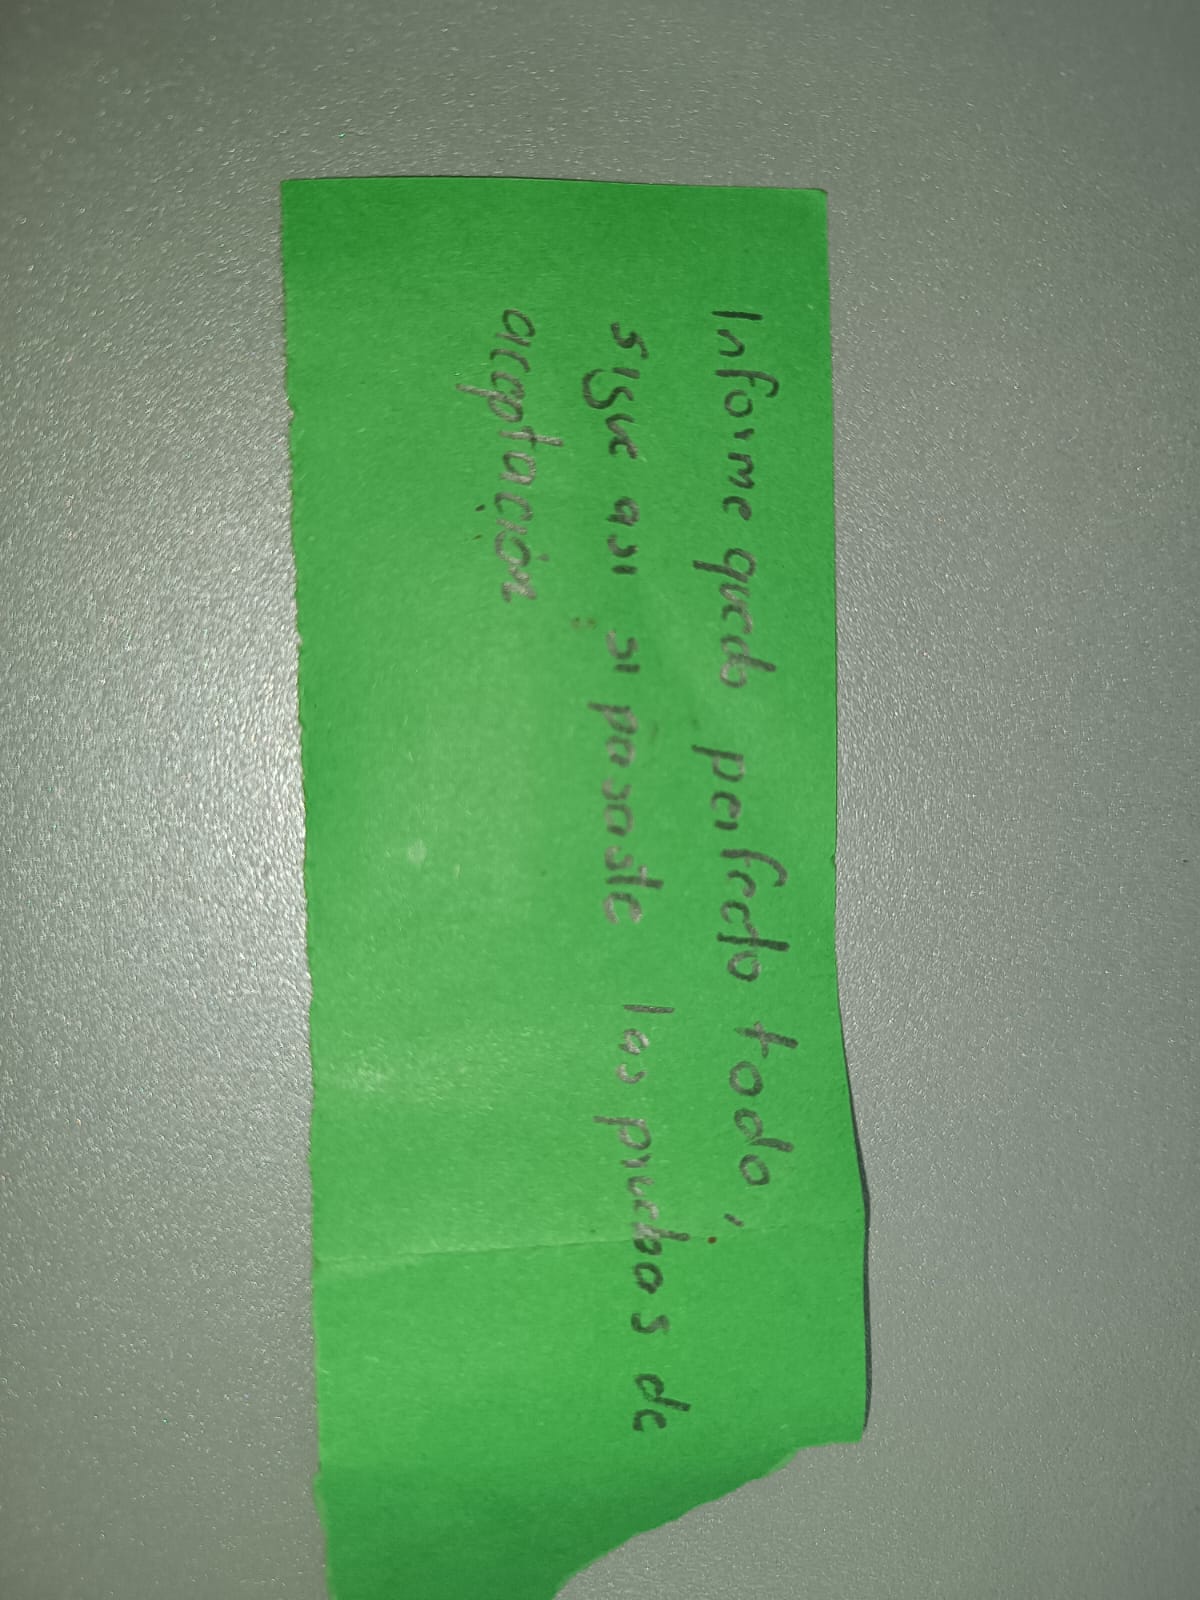 Informe quedo perfecto todo,
sigue asi si pasaste las pruebas de
aceptación